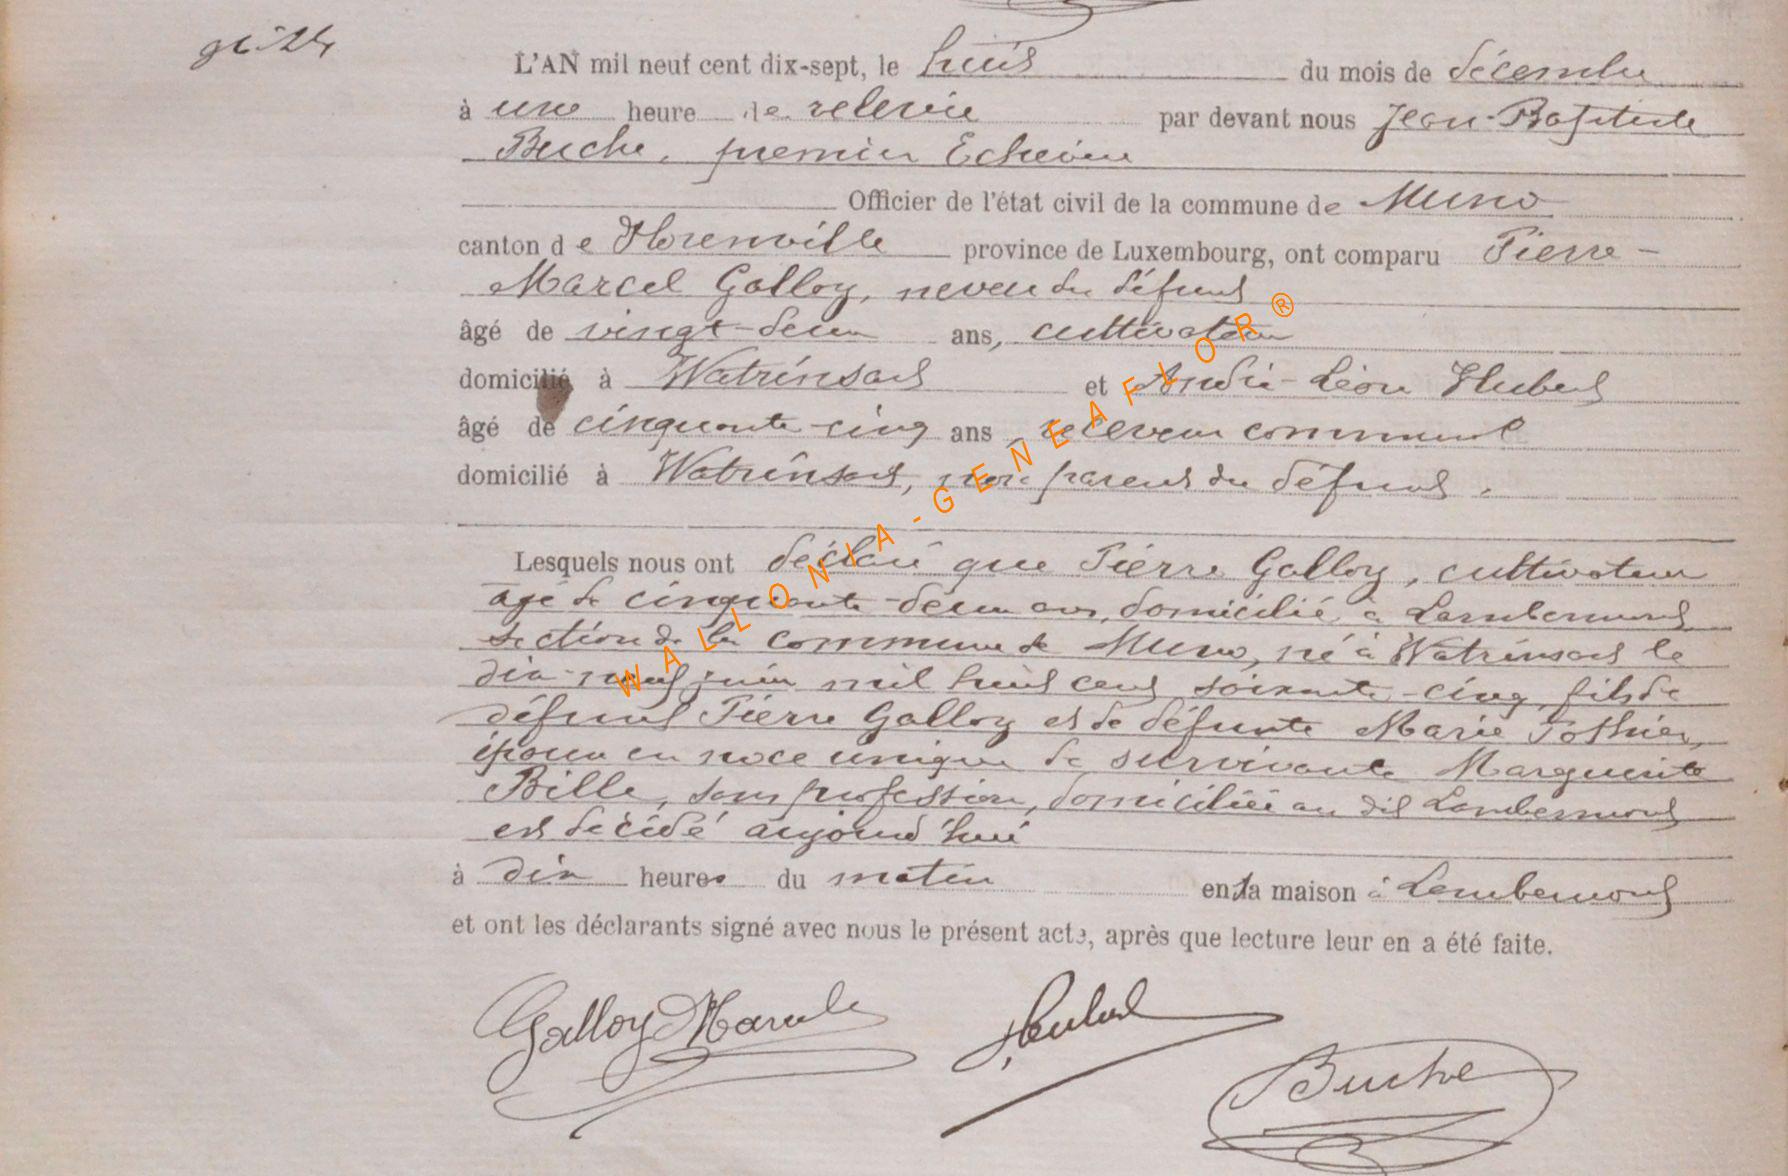 L'AN mil neuf cent dix-sept, le huit du mois de décembre
à une heure de relevée par devant nous Jean-Baptiste
Buche, premier Echevin
Officier de l'état civil de la commune de Muno
canton de Florenville province de Luxembourg, ont comparu Pierre-
Marcel Galloy, neveu du défunt
âgé de vingt-deux ans, cultivateur
domicilié à Watrinsart et André-Léon Hubert
âgé de cinquante-cinq ans, receveur communal
domicilié à Watrinsart, non parent du défunt.
Lesquels nous ont déclaré que Pierre Galloy, cultivateur
âgé de cinquante-deux ans, domicilié à Lambermont
section de la commune de Muno, né à Watrinsart le
dix-neuf juin mil huit cent soixante-cinq, fils de
défunt Pierre Galloy et de défunte Marie Pothier,
époux en noce unique de survivante Marguerite
Bille, sans profession, domiciliée au dit Lambermont
est décédé aujourd'hui
à dix heures du matin en la maison à Lambermont
et ont les déclarants signé avec nous le présent acte, après que lecture leur en a été faite.
Galloy Marcel
Hubert
Buche
WALLONIA-GENEAFLOR®